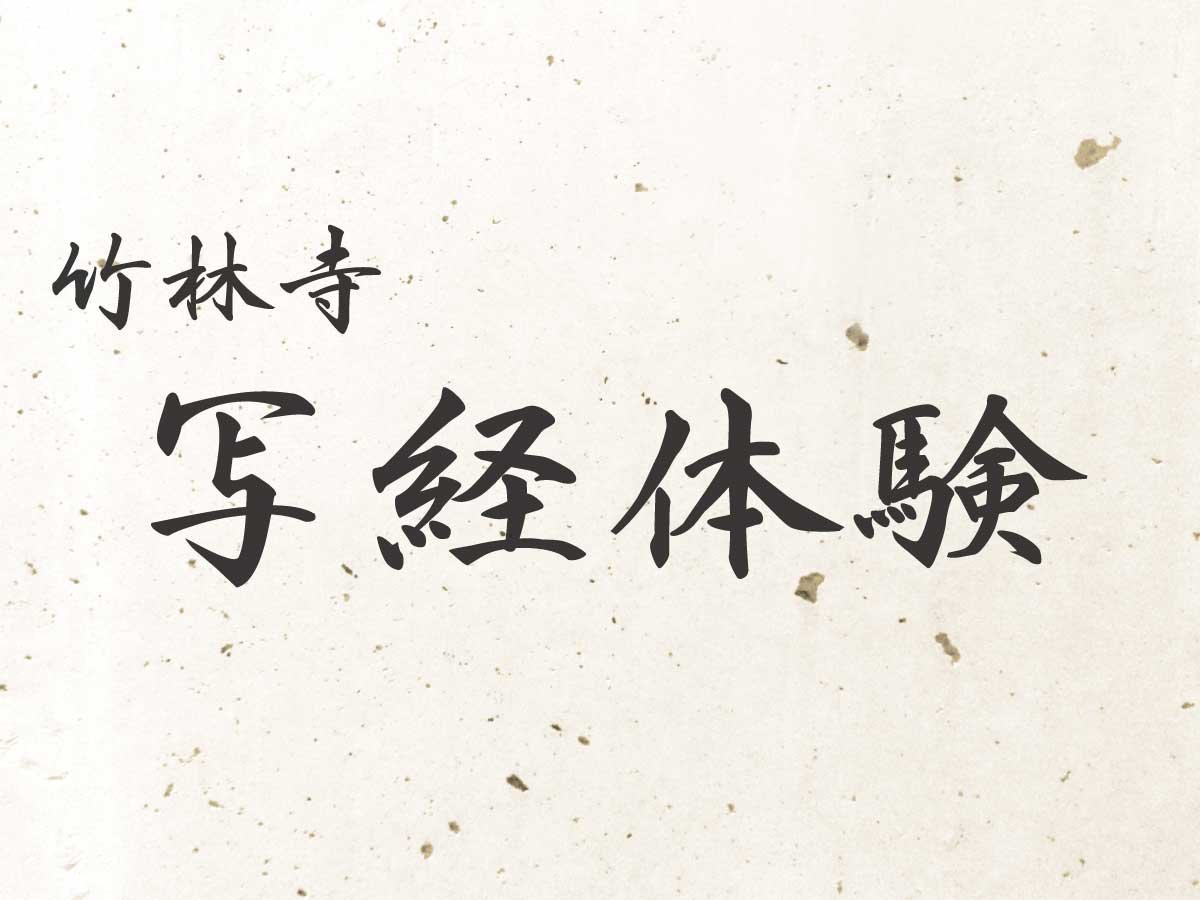 竹林寺
写経体験